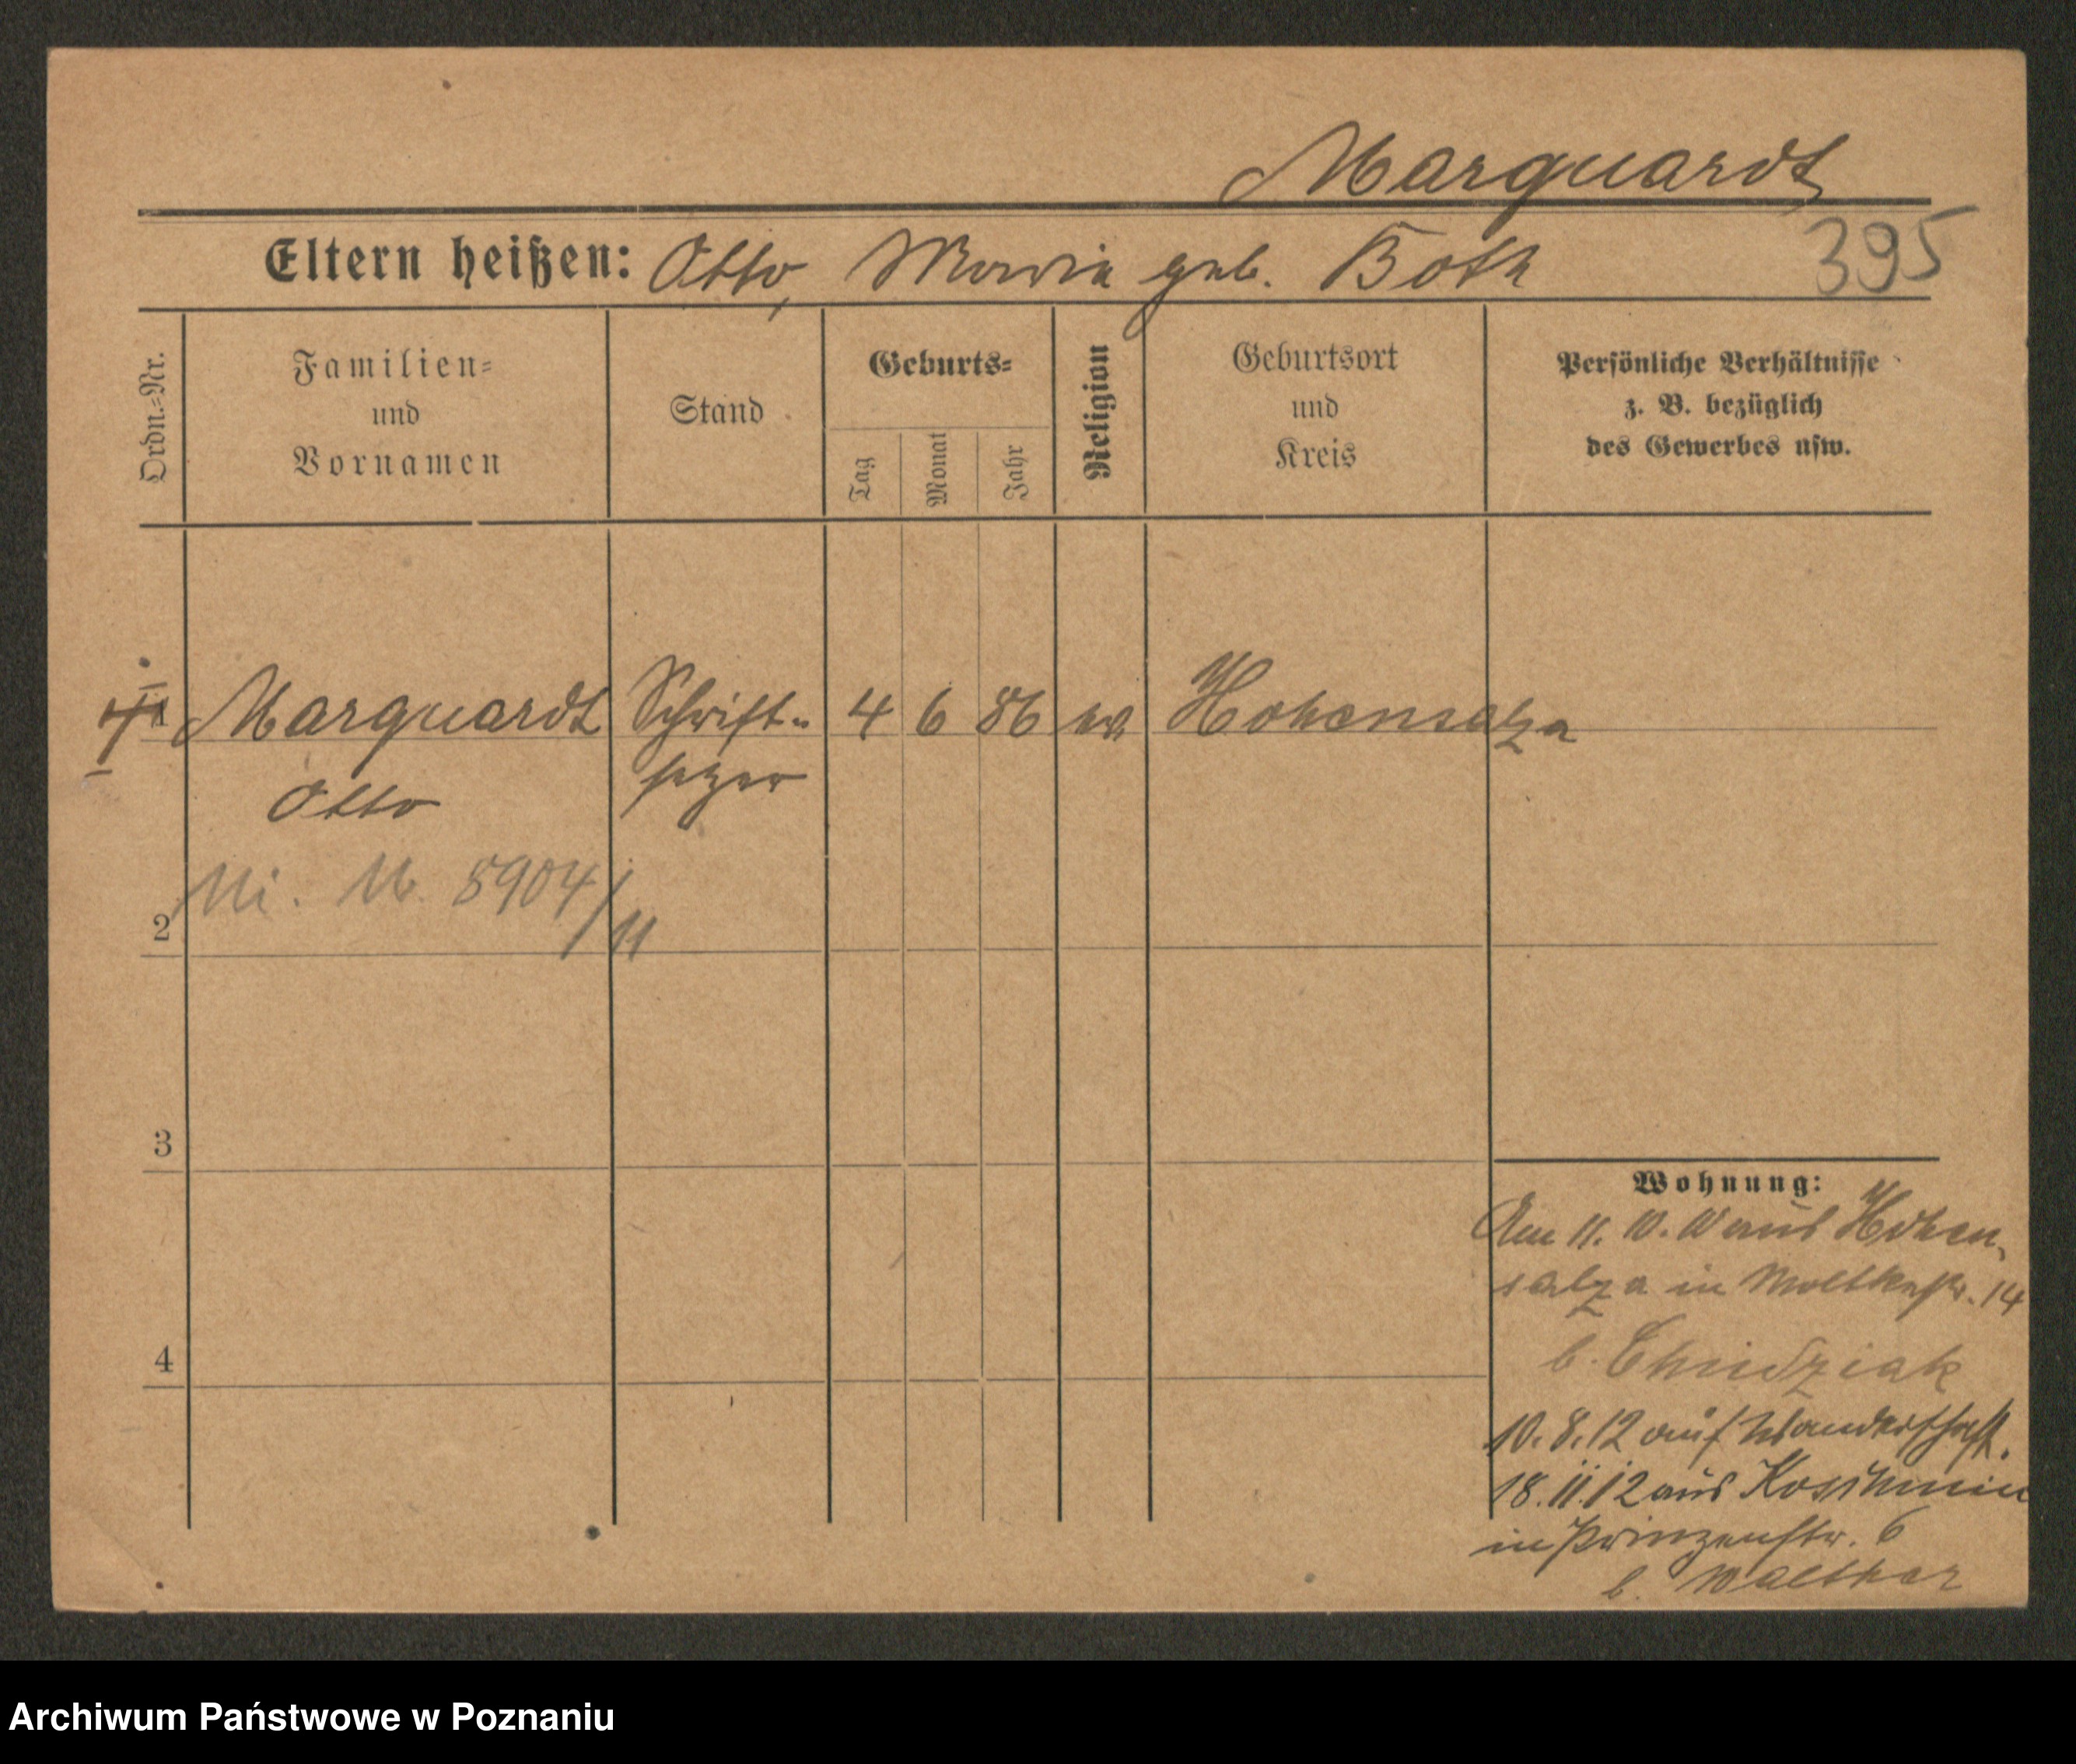 Marquardt
Eltern heißen: Otto, Maria geb. Both
395
Ordn.=Nr.
Familien=
und
Vornamen
Stand
Geburts=
Tag
Monat
Jahr
Religion
Geburtsort
und
Kreis
Persönliche Verhältnisse
z. B. bezüglich
des Gewerbes usw.
1 Marquardt Schrift- 4 6 86 ev. Hohensalza
Otto setzer
Mi. M. 8904/11
2
3
4
Wohnung:
Am 11. 10. 10 aus Hohen-
salza in Moltkestr. 14
b. Chudziak
10. 8. 12 auf Wanderschaft.
18. 11. 12 aus Koschmin
in Prinzenstr. 6
b. Walther
Archiwum Państwowe w Poznaniu